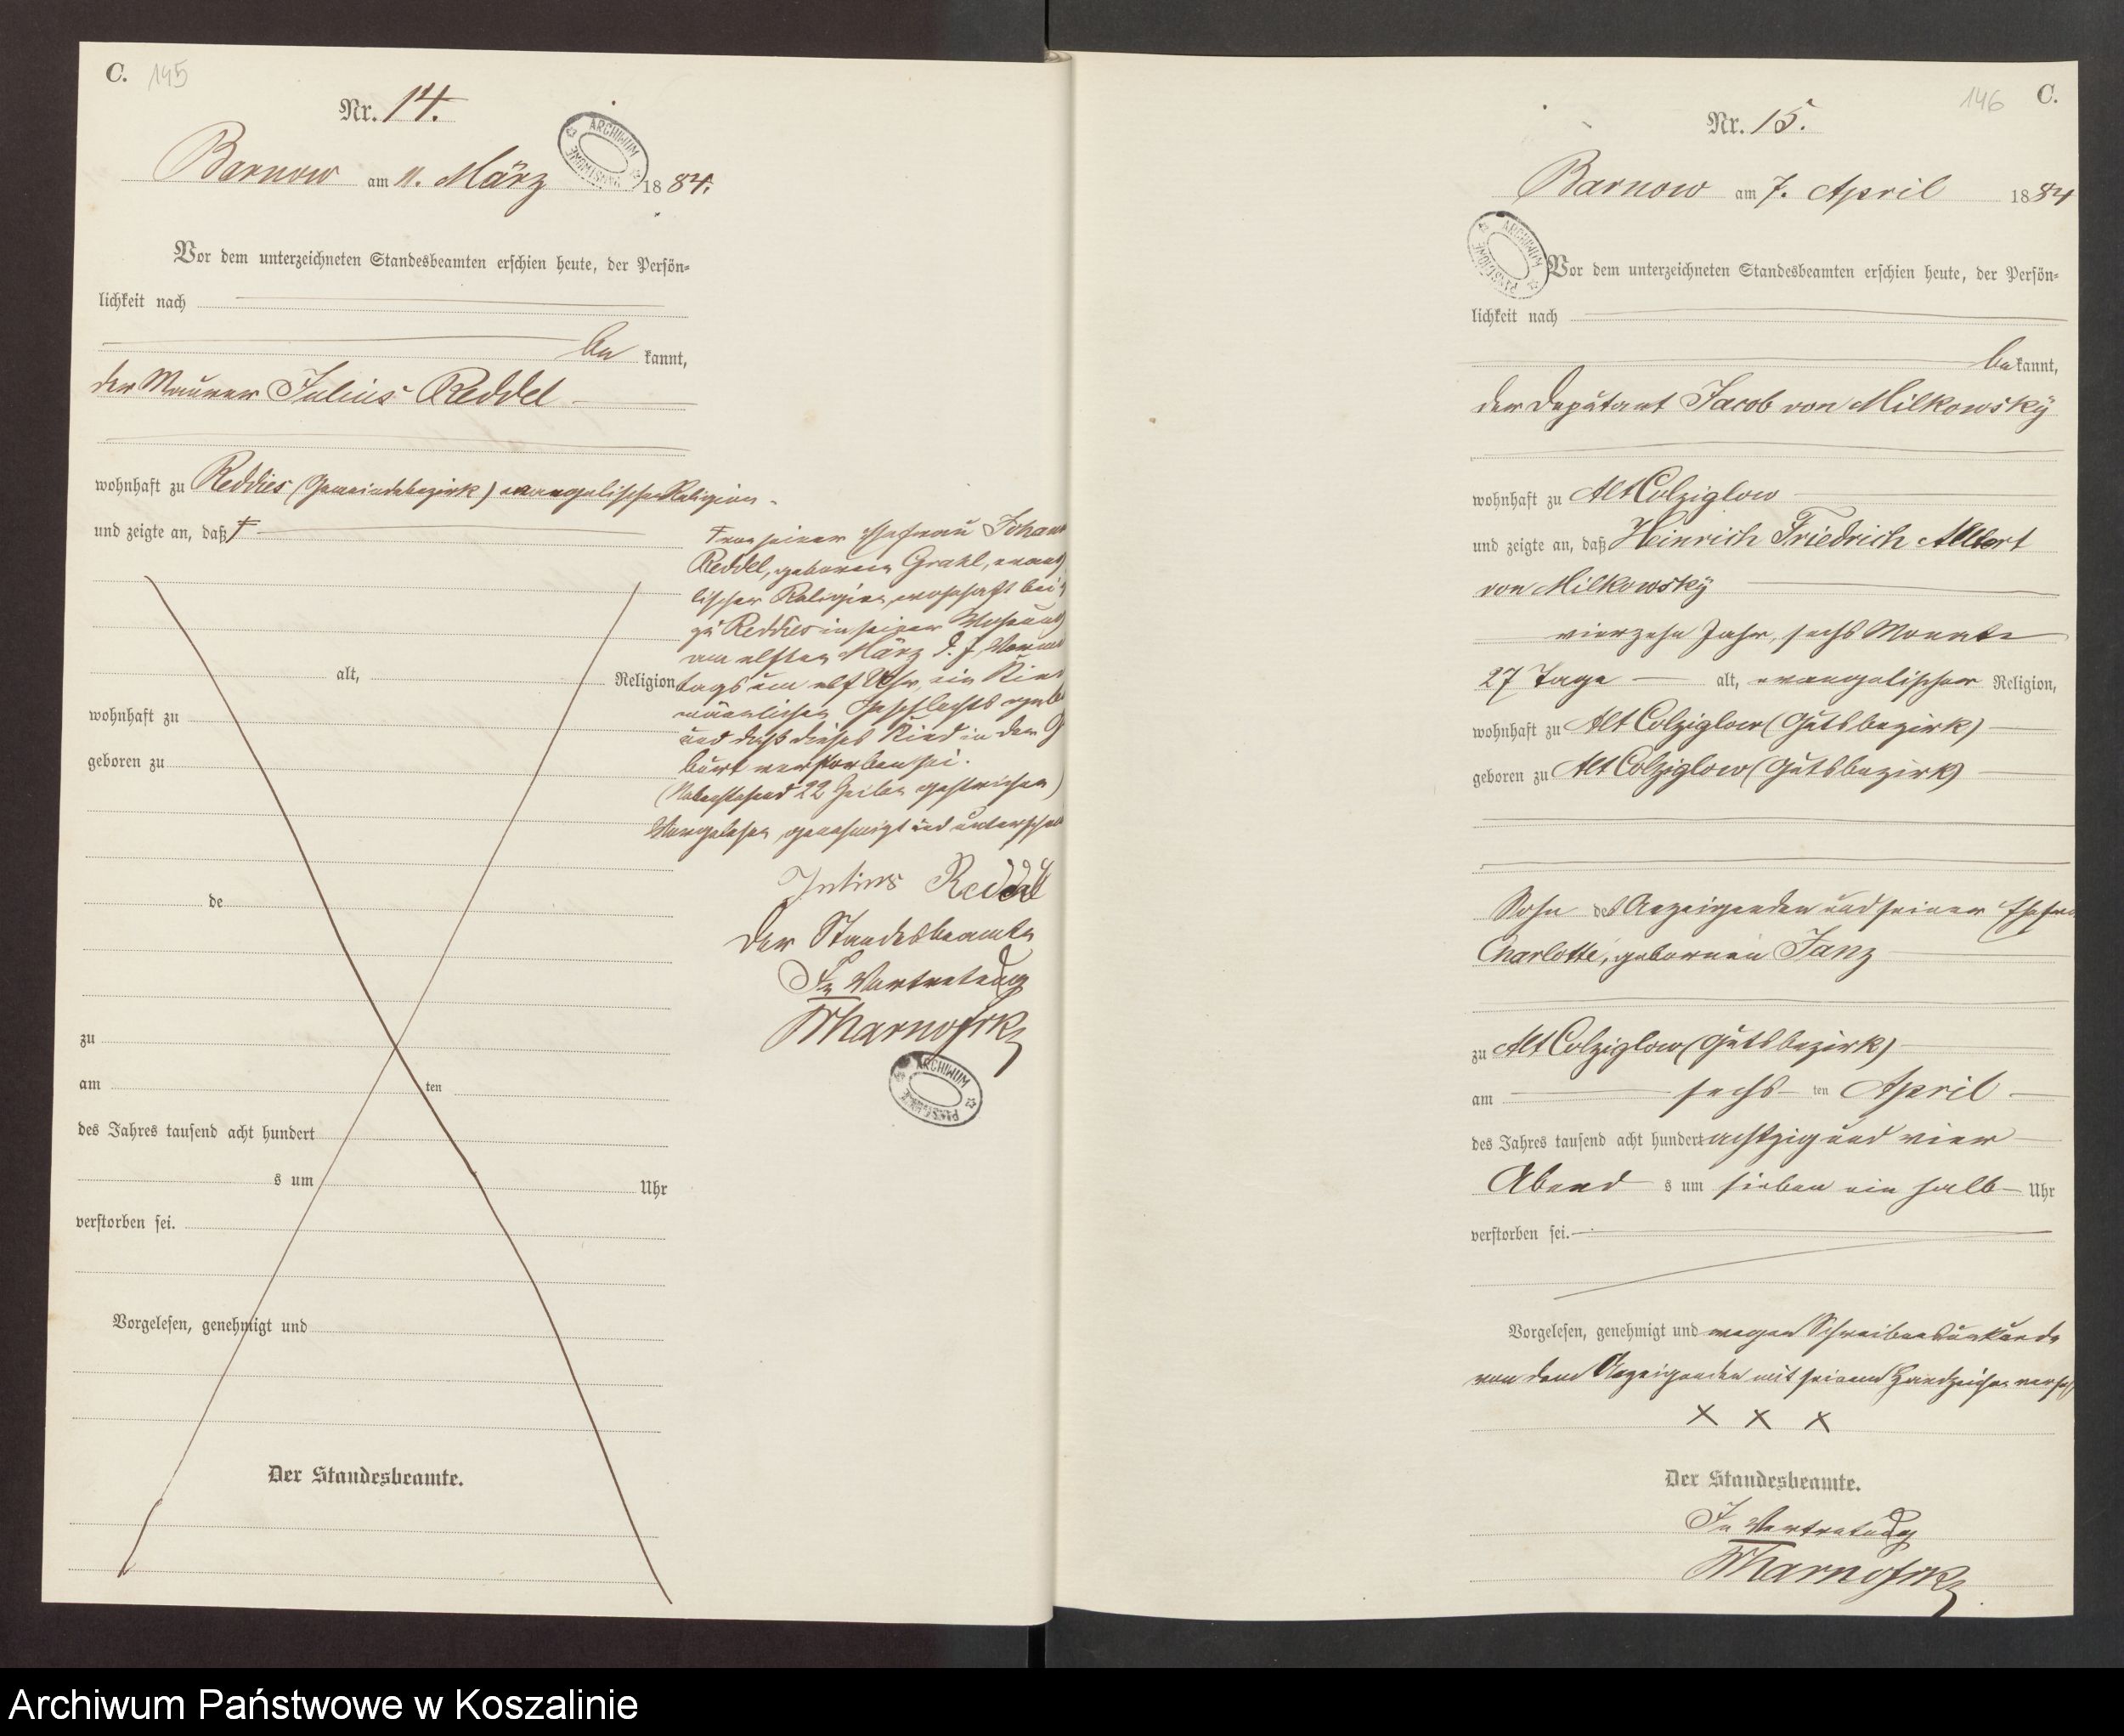 C. 145
Nr. 14.
ARCHIWUM PAŃSTWOWE
Barnow am 11. März 1884.
Vor dem unterzeichneten Standesbeamten erschien heute, der Persön-
lichkeit nach
be kannt,
der Maurer Julius Reddel
wohnhaft zu Reddies (Gemeindebezirk) evangelischer Religion
und zeigte an, daß †
† von seiner Ehefrau Johann
Reddel, geborenen Grahl, evang
lischer Religion, wohnhaft bei
zu Reddies in seiner Wohnung
am elften März d. J. Vormit
tags um elf Uhr, ein Kind
männlichen Geschlechts gebo
und daß dieses Kind in der G
burt verstorben sei.
(Nebenstehend 22 Zeilen gestrichen)
Vorgelesen, genehmigt und unterschrie
Julius Reddel
Der Standesbeamte
In Vertretung
ARCHIWUM PAŃSTWOWE
alt, Religion
wohnhaft zu
geboren zu
de
zu
am ten
des Jahres tausend acht hundert
s um Uhr
verstorben sei.
Vorgelesen, genehmigt und
Der Standesbeamte.
146 C.
Nr. 15.
Barnow am 7. April 1884
ARCHIWUM PAŃSTWOWE
Vor dem unterzeichneten Standesbeamten erschien heute, der Persön-
lichkeit nach
bekannt,
der Deputant Jacob von Milkowsky
wohnhaft zu Alt Colziglow
und zeigte an, daß Heinrich Friedrich Albert
von Milkowsky
vierzehn Jahr, sechs Monate
27 Tage alt, evangelischer Religion,
wohnhaft zu Alt Colziglow (Gutsbezirk)
geboren zu Alt Colziglow (Gutsbezirk)
Sohn des Anzeigenden und seiner Ehefrau
Charlotte, geborenen Janz
zu Alt Colziglow (Gutsbezirk)
am sechs ten April
des Jahres tausend acht hundert achtzig und vier
Abend s um sieben ein halb Uhr
verstorben sei.
Vorgelesen, genehmigt und wegen Schreibensunkunde
von dem Anzeigenden mit seinem Handzeichen verseh
X X X
Der Standesbeamte.
In Vertretung
Archiwum Państwowe w Koszalinie